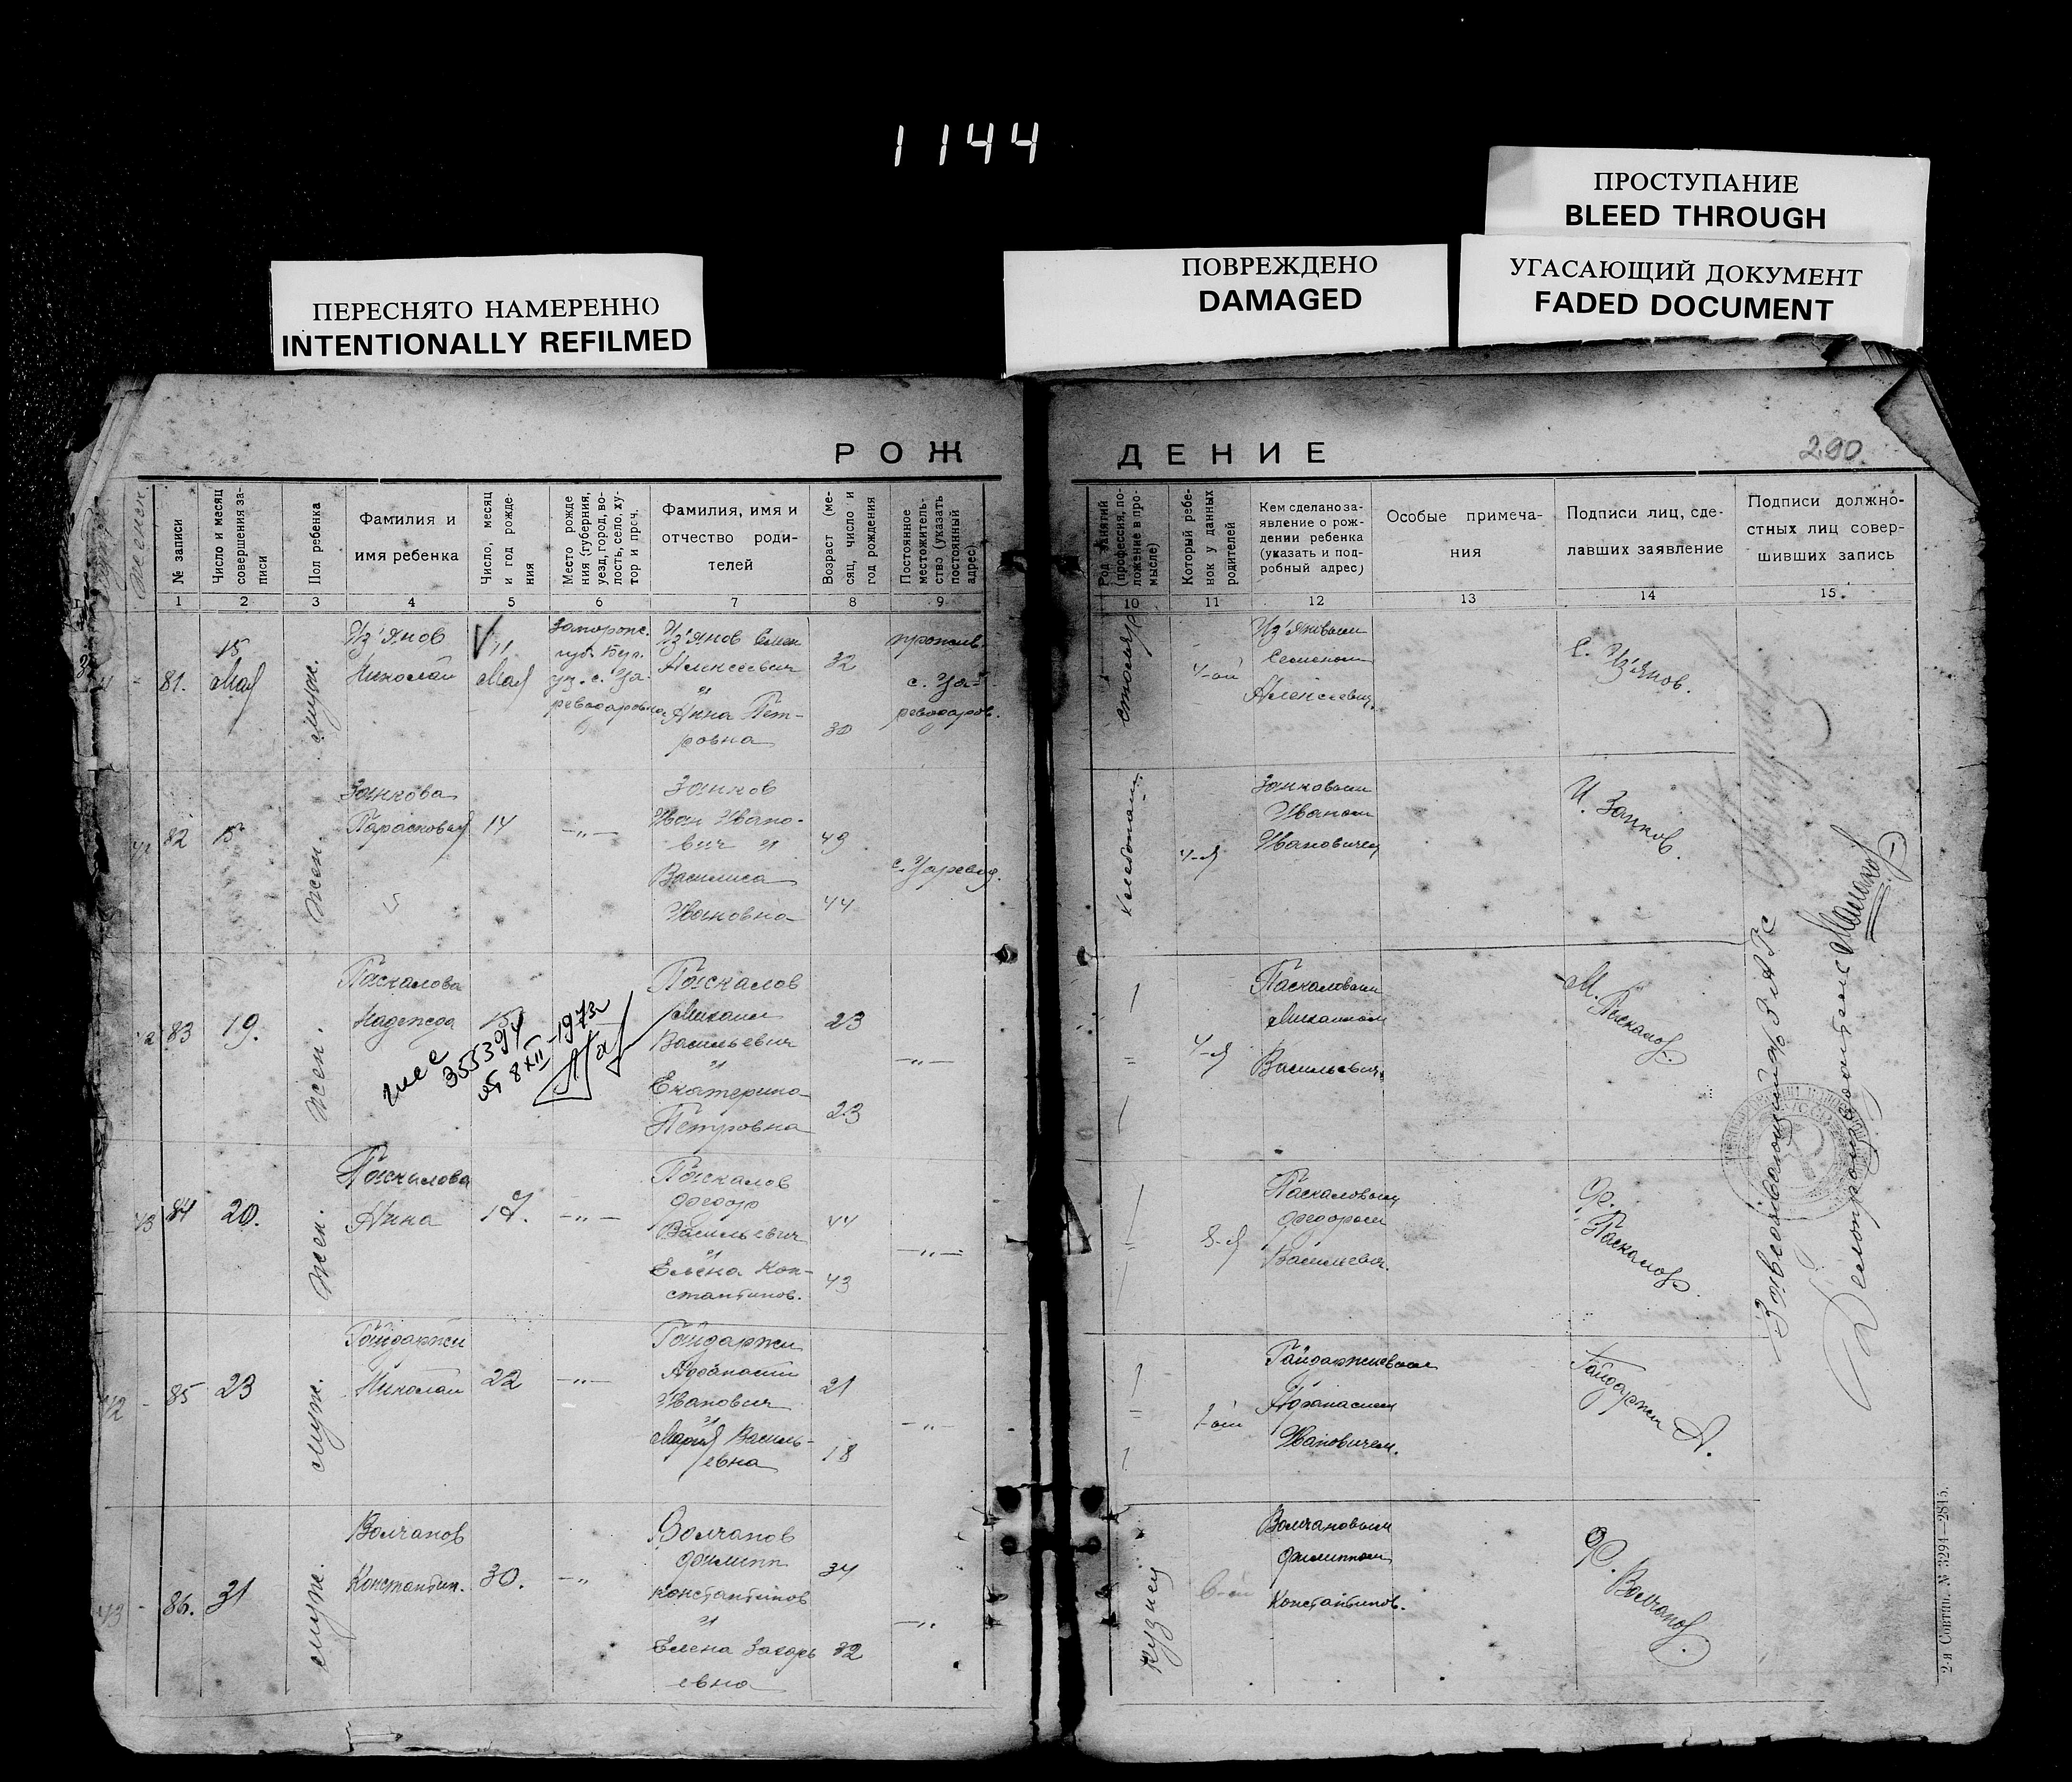 1144
ПРОСТУПАНИЕ
BLEED THROUGH
ПЕРЕСНЯТО НАМЕРЕННО
INTENTIONALLY REFILMED
ПОВРЕЖДЕНО
DAMAGED
УГАСАЮЩИЙ ДОКУМЕНТ
FADED DOCUMENT
РОЖДЕНИЕ
290
№ записи
Число и месяц
совершения за-
писи
Пол ребенка
Фамилия и
имя ребенка
Число, месяц
и год рожде-
ния
Место рожде
ния (губерния,
уезд, город, во-
лость, село, ху-
тор и проч.
Фамилия, имя и
отчество роди-
телей
Возраст (ме-
сяц, число и
год рождения
Постоянное
местожитель-
ство (указать
постоянный
адрес)
Род занятий
(профессия, по-
ложение в про-
мысле)
Который ребе-
нок у данных
родителей
Кем сделано за-
явление о рож-
дении ребенка
(указать и под-
робный адрес)
Особые примеча-
ния
Подписи лиц, сде-
лавших заявление
Подписи должно-
стных лиц совер-
шивших запись
1 2 3 4 5 6 7 8 9 10 11 12 13 14 15
81.
15
Мая
муж.
Из'янов
Николай
11
Мая
Запорож.
губ. Бер.
уз. с. Ца-
реводаровка
Из'янов Семен
Алексеевич
и
Анна Пет-
ровна
32
30
прожив.
с. Ца-
реводаров.
столяр
4-ой
Из'яновым
Семеном
Алексеевич.
С. Из'янов.
82
15
жен.
Занкова
Парасковия
14
—„—
Занков
Иван Ивано-
вич и
Василиса
Ивановна
49
44
с. Царевод.
хлебопаш.
4-я
Занковым
Иваном
Ивановичем
И. Занков.
83
19.
жен.
Паскалова
Надежда
15
355394
8 XII-1973г
Паскалов
Михаил
Васильевич
и
Екатерина
Петровна
23
23
—„—
4-я
Паскаловым
Михаилом
Васильевич.
М. Паскалов.
84
20.
жен.
Паскалова
Анна
17.
—„—
Паскалов
Федор
Васильевич
и
Елена Кон-
стантинов.
44
43
—„—
8-я
Паскаловым
Федором
Васильевич.
Ф. Паскалов.
85
23
муж.
Гайдаржи
Николай
22
—„—
Гайдаржи
Афанасий
Иванович
и
Мария Василь-
евна
21
18
—„
1-ый
Гайдаржиевым
Афанасием
Ивановичем.
Гайдаржи А.
86.
31
муж.
Волчанов
Константин.
30.
—„
Волчанов
Филипп
Константинов
и
Елена Захарь
евна
34
32
—„
кузнец
6-ой
Волчановым
Филиппом
Константинов.
Ф. Волчанов.
Заведывающий ЗАГС
Делопроизводитель
2-я Советип. № 3291—2815.